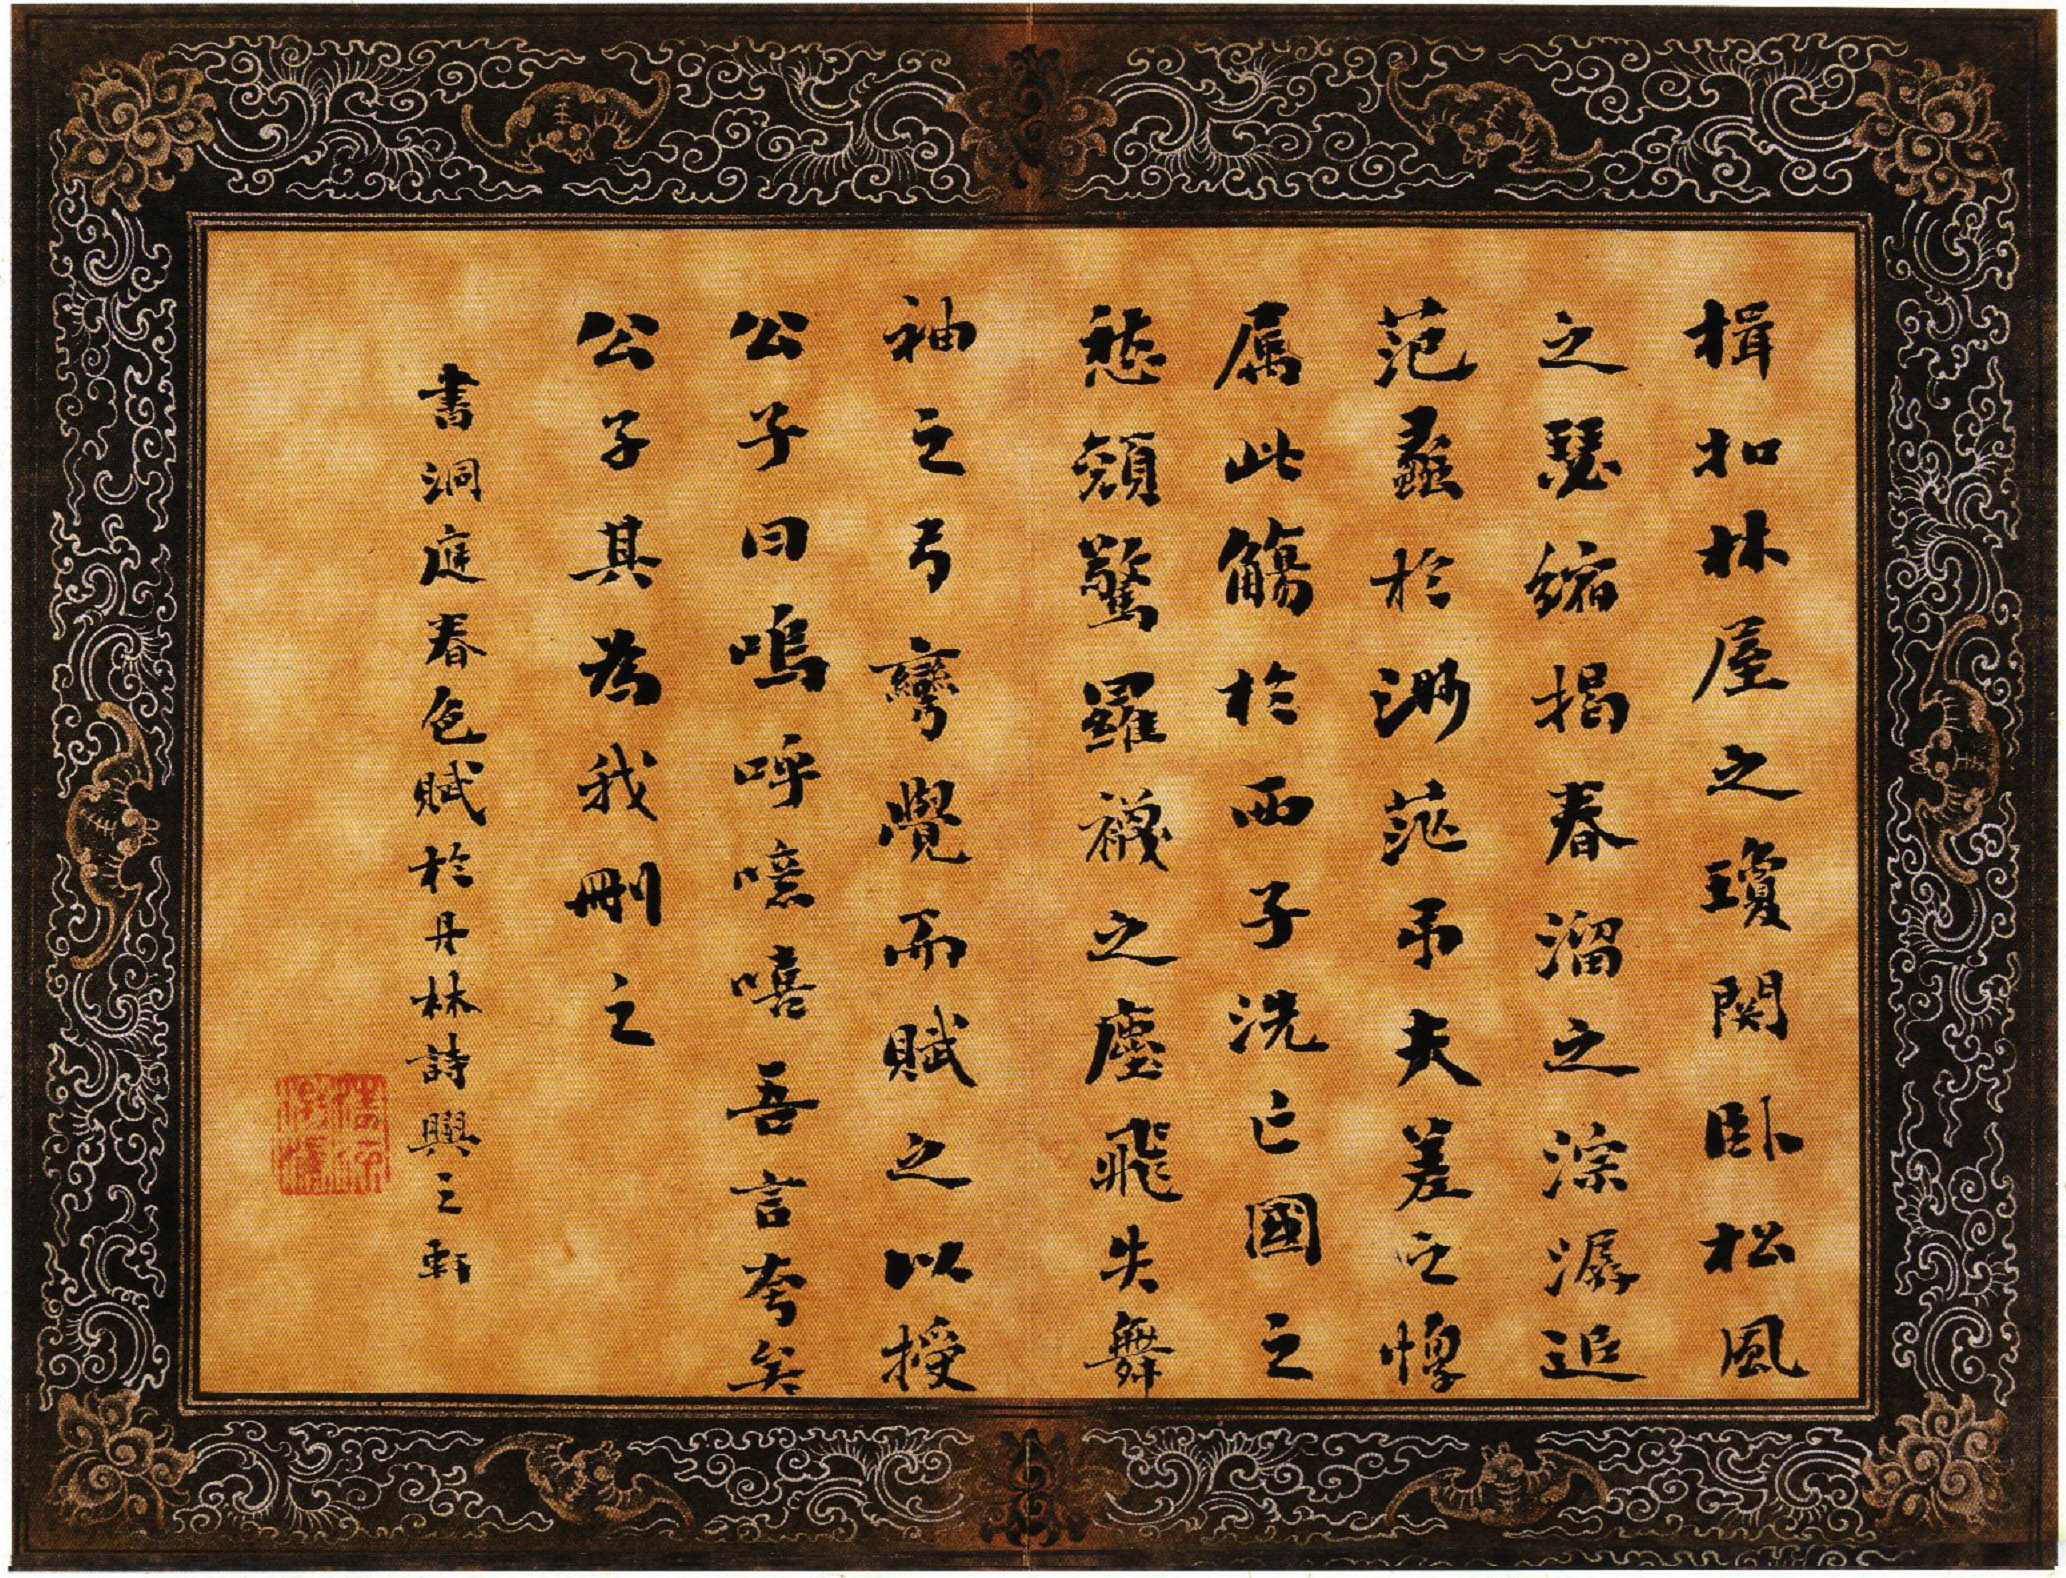 楫扣林屋之瓊関卧松風
之瑟縮揭春溜之淙潺追
范蠡於渺茫吊夫差之惸
属此觴於西子洗亡國之
愁顏驚羅襪之塵飛失舞
袖之弓彎覺而賦之以授
公子曰嗚呼噫嘻吾言夸矣
公子其為我刪之
書洞庭春色賦於丹林詩興之軒